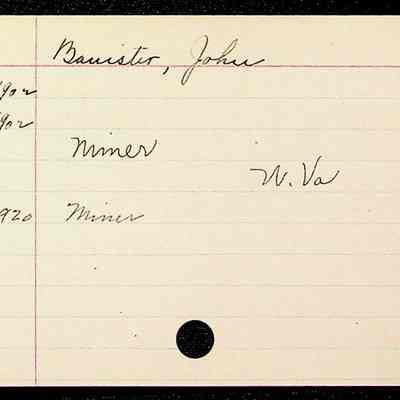 Banister, John
1902
1902
Miner
W. Va
1920 Miner